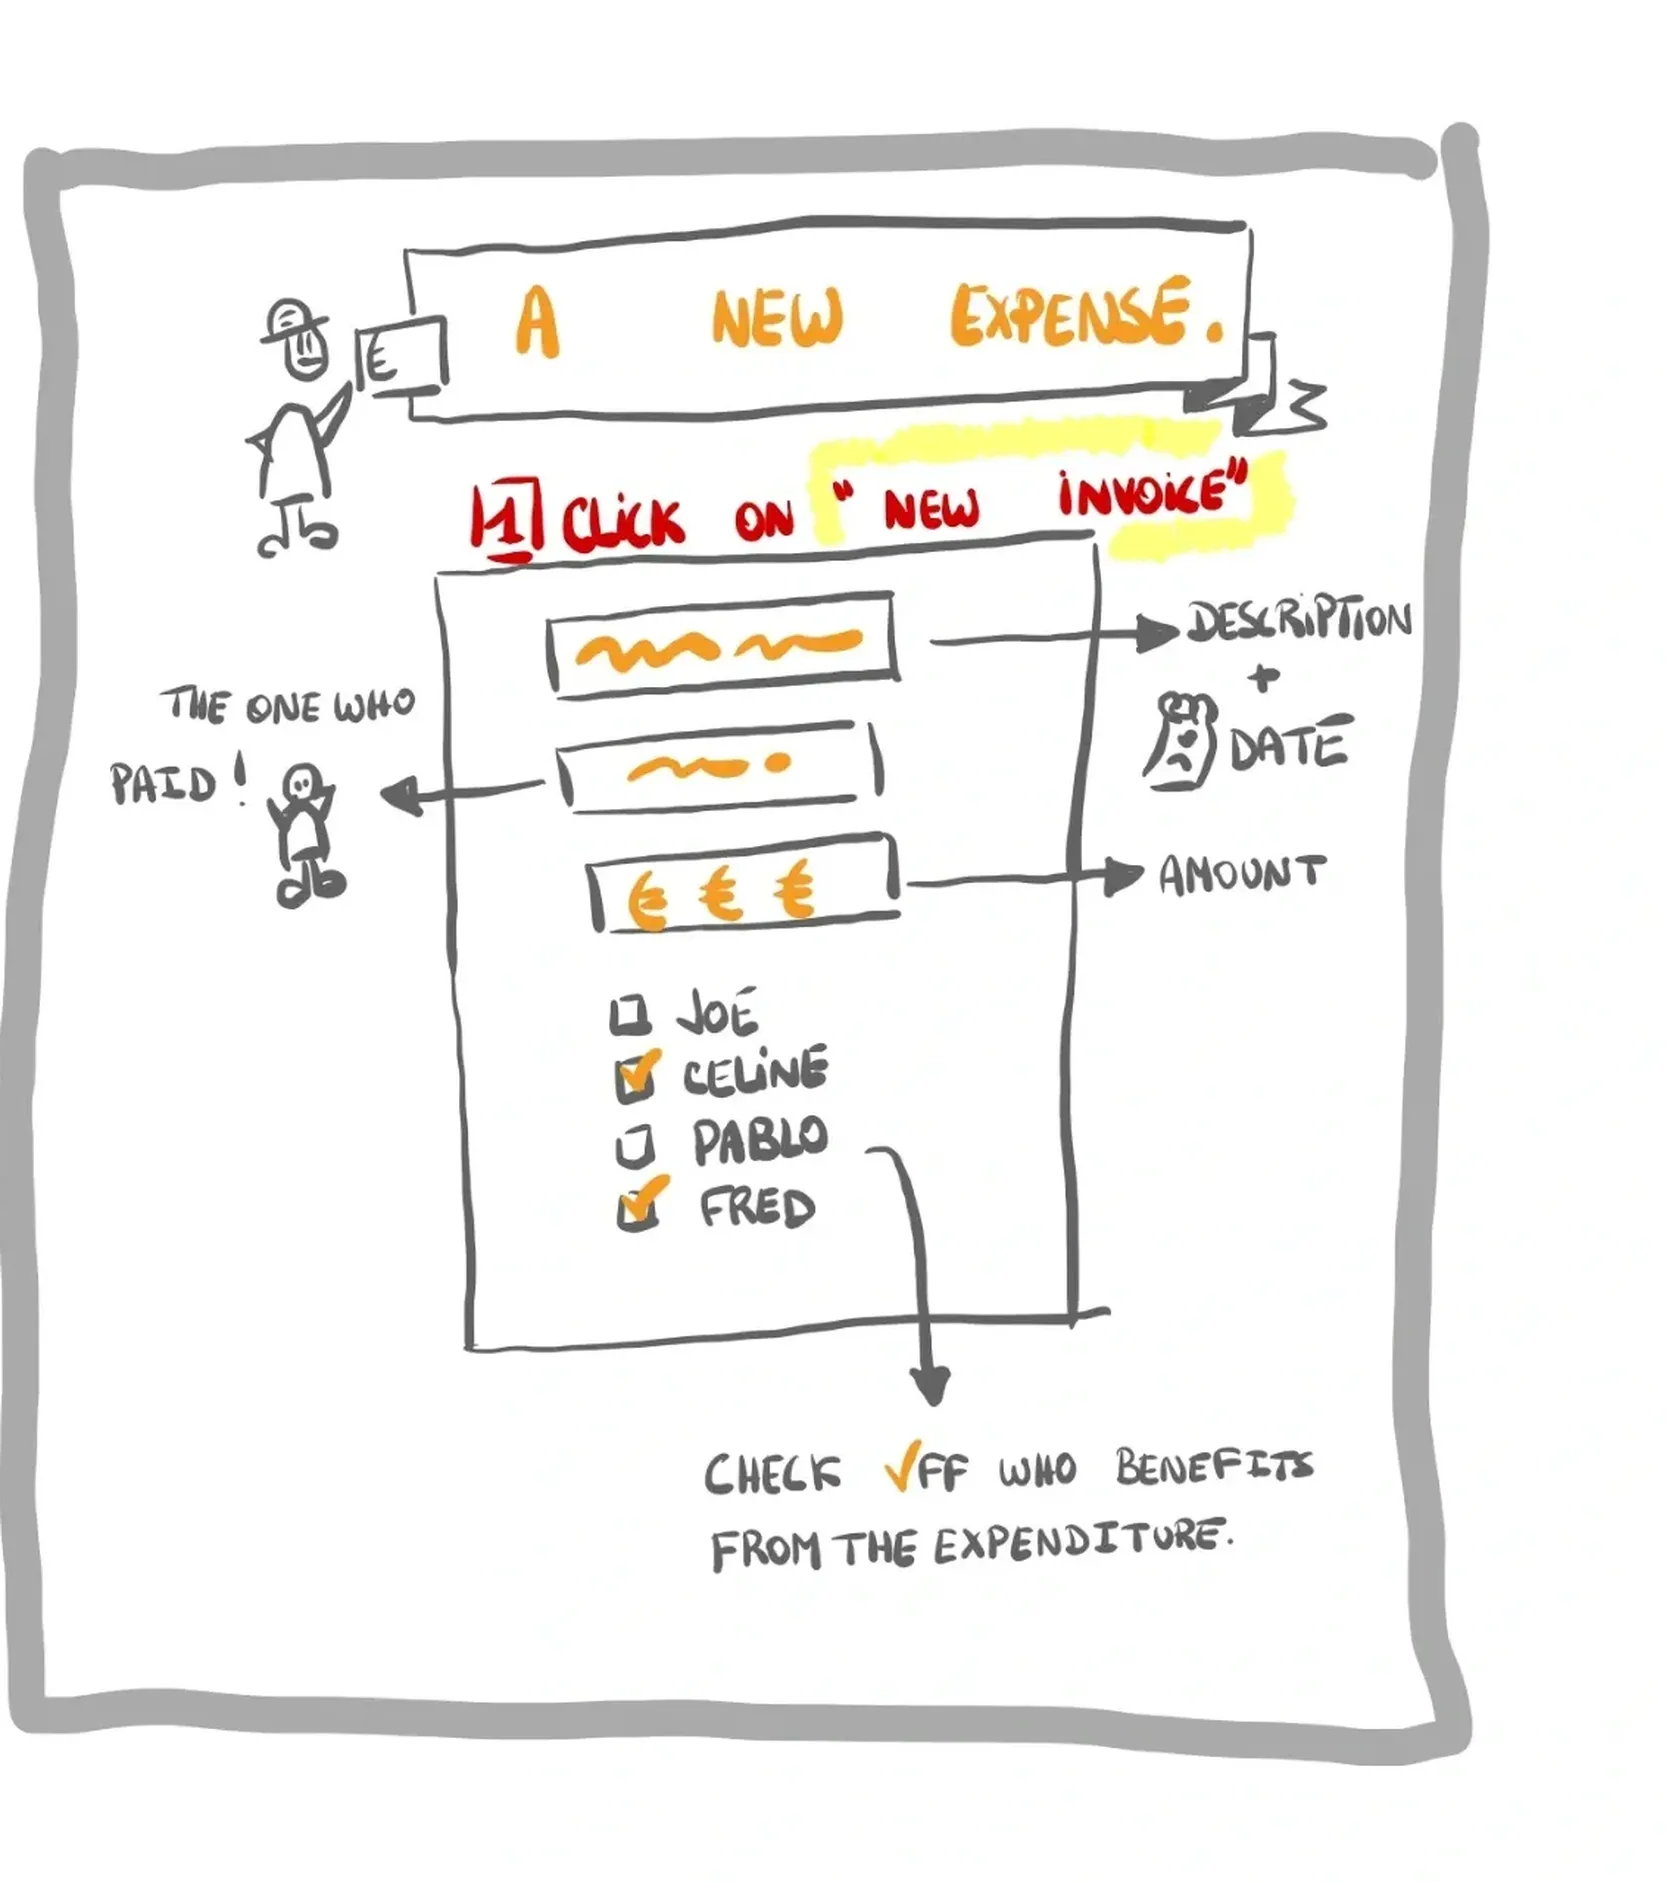 A NEW EXPENSE.
E
1 CLICK ON "NEW INVOICE"
DESCRIPTION
+
DATE
THE ONE WHO
PAID!
€ € €
AMOUNT
JOE
CELINE
PABLO
FRED
CHECK √FF WHO BENEFITS
FROM THE EXPENDITURE.